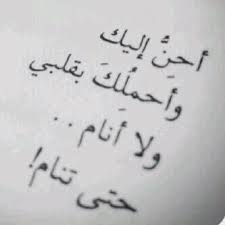 أحنُّ إليك
وأحملُكَ بقلبي
ولا أنام ..
حتى تنام!